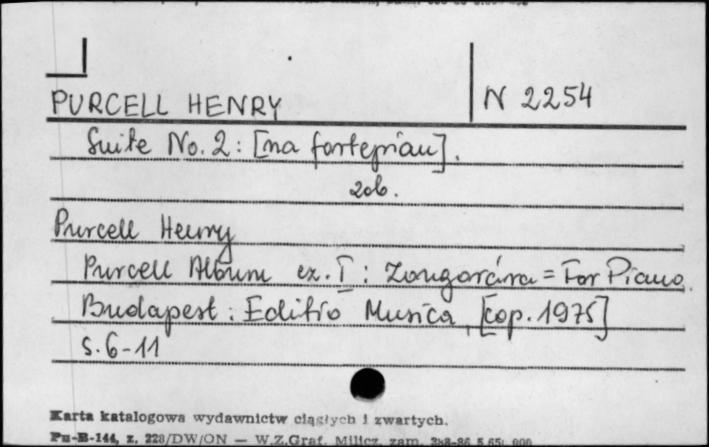 PURCELL HENRY
N 2254
Suite No. 2: [na fortepian].
zob.
Purcell Henry
Purcell Album cz. I: Zongorára = For Piano.
Budapest: Editio Musica, [cop. 1975]
s. 6-11
Karta katalogowa wydawnictw ciągłych i zwartych.
Pu-B-144, z. 228/DW/ON — W.Z.Graf. Milicz, zam.